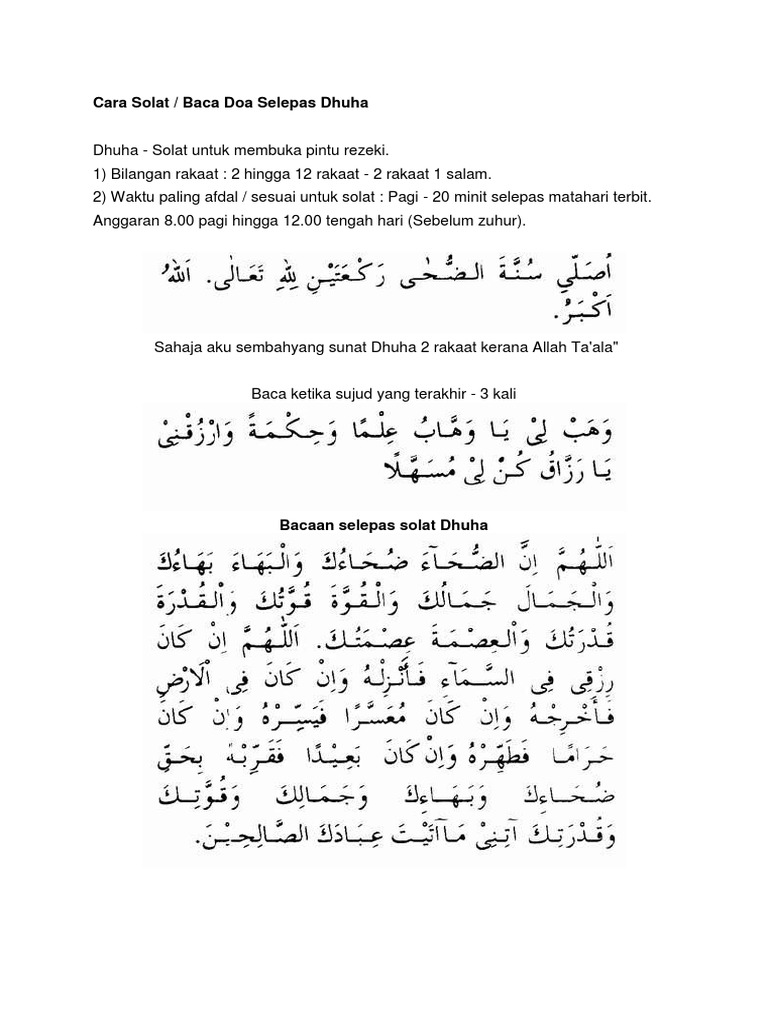 Cara Solat / Baca Doa Selepas Dhuha
Dhuha - Solat untuk membuka pintu rezeki.
1) Bilangan rakaat : 2 hingga 12 rakaat - 2 rakaat 1 salam.
2) Waktu paling afdal / sesuai untuk solat : Pagi - 20 minit selepas matahari terbit.
Anggaran 8.00 pagi hingga 12.00 tengah hari (Sebelum zuhur).
اُصَلِّي سُنَّةَ الضُّحٰى رَكْعَتَيْنِ لِلّٰهِ تَعَالٰى. اَللهُ
اَكْبَرُ.
Sahaja aku sembahyang sunat Dhuha 2 rakaat kerana Allah Ta'ala"
Baca ketika sujud yang terakhir - 3 kali
وَهَبْ لِيْ يَا وَهَّابُ عِلْمًا وَحِكْمَةً وَارْزُقْنِيْ
يَا رَزَّاقُ كُنْ لِيْ مُسَهَّلًا
Bacaan selepas solat Dhuha
اَللّٰهُمَّ اِنَّ الضُّحَآءَ ضُحَاءُكَ وَالْبَهَاءَ بَهَاءُكَ
وَالْجَمَالَ جَمَالُكَ وَالْقُوَّةَ قُوَّتُكَ وَالْقُدْرَةَ
قُدْرَتُكَ وَالْعِصْمَةَ عِصْمَتُكَ. اَللّٰهُمَّ اِنْ كَانَ
رِزْقِى فِى السَّمَآءِ فَأَنْزِلْهُ وَاِنْ كَانَ فِى اْلاَرْضِ
فَأَخْرِجْهُ وَاِنْ كَانَ مُعَسَّرًا فَيَسِّرْهُ وَاِنْ كَانَ
حَرَامًا فَطَهِّرْهُ وَاِنْ كَانَ بَعِيْدًا فَقَرِّبْهُ بِحَقِّ
ضُحَاءِكَ وَبَهَاءِكَ وَجَمَالِكَ وَقُوَّتِكَ
وَقُدْرَتِكَ آتِنِيْ مَآآتَيْتَ عِبَادَكَ الصَّالِحِيْنَ.